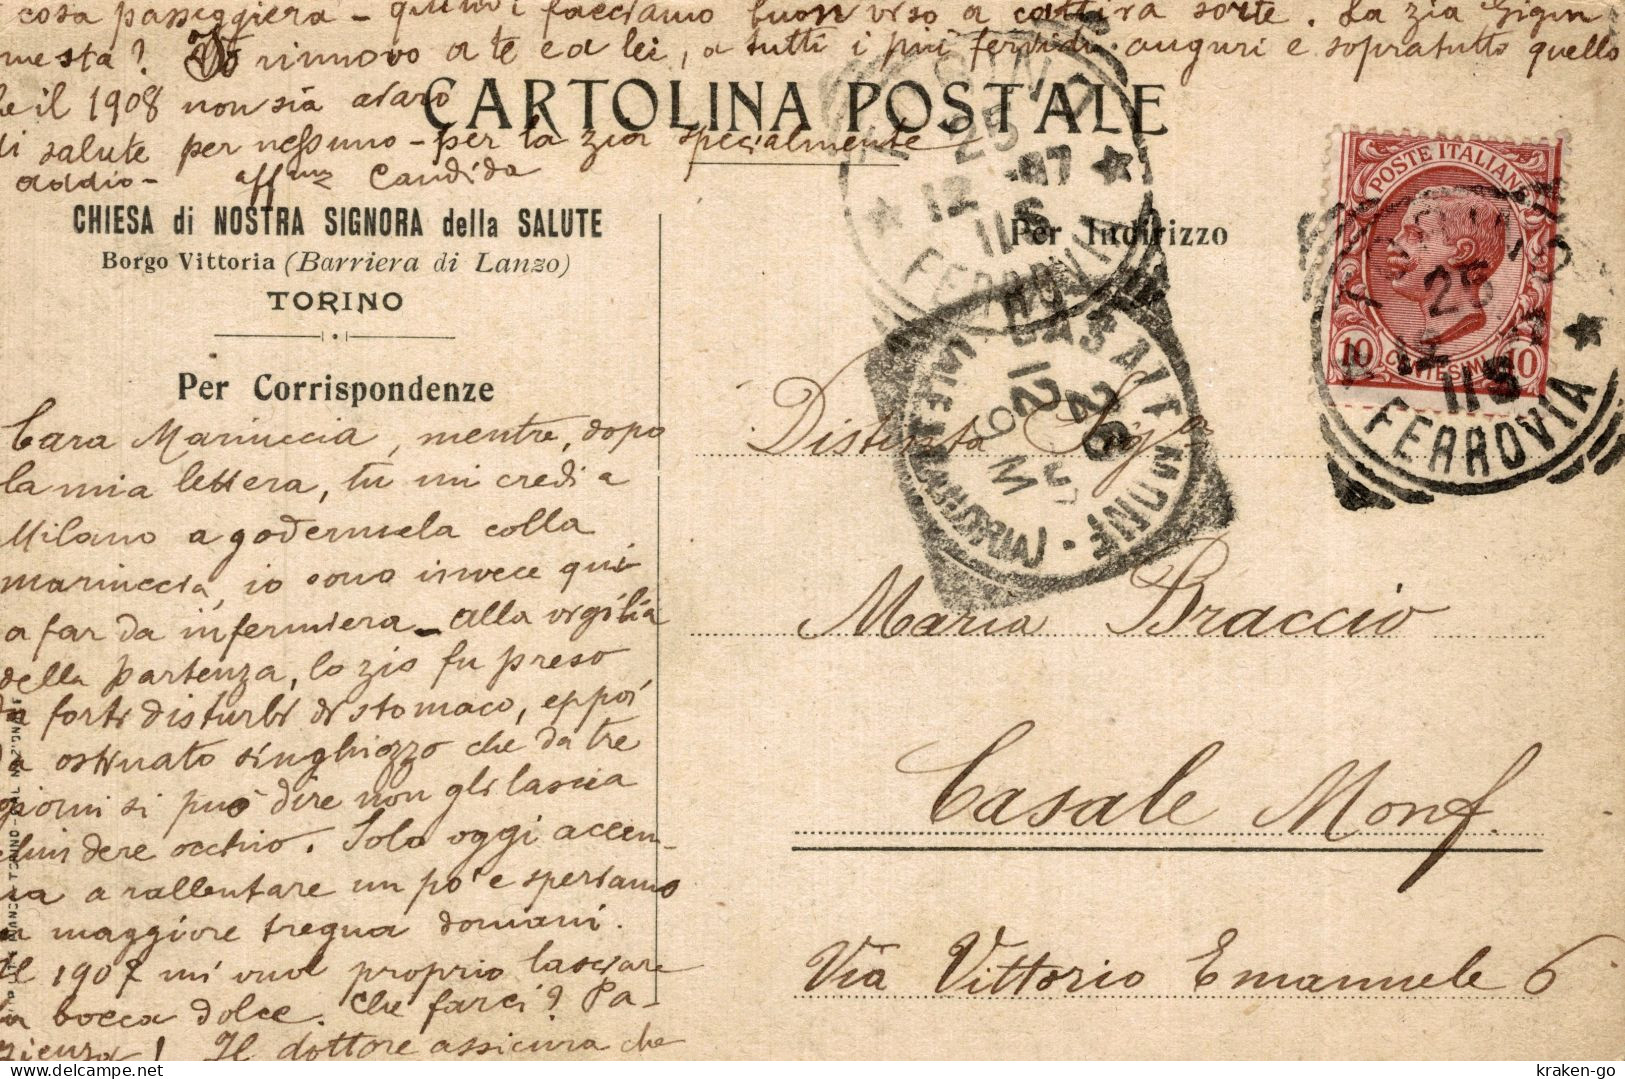 cosa passeggiera - quindi facciamo buon viso a cattiva sorte. La zia Gigin
mesta? Vo rinnovo a te e a lei, a tutti i più fervidi auguri e sopratutto quello
e il 1908 non sia avaro
CARTOLINA POSTALE
di salute per nessuno - per la zia specialmente
addio - affma Candida
CHIESA di NOSTRA SIGNORA della SALUTE
Borgo Vittoria (Barriera di Lanzo)
TORINO
Per Corrispondenze
Cara Mariuccia, mentre, dopo
la mia lettera, tu mi credi a
Milano a godermela colla
mariuccia, io sono invece qui
a far da infermiera - alla vigilia
della partenza, lo zio fu preso
da forti disturbi di stomaco, eppoi
da ostinato singhiozzo che da tre
giorni si può dire non gli lascia
chiudere occhio. Solo oggi accen-
na a rallentare un po' e speriamo
in maggiore tregua domani.
Il 1907 mi vuol proprio lasciare
la bocca dolce. Che farci? Pa-
zienza! Il dottore assicura che
Per Indirizzo
Distinta Sig.a
Maria Braccio
Casale Monf.
Via Vittorio Emanuele 6
POSTE ITALIANE
10 CENTESIMI 10
TORINO
25
12 - 07
11 S
FERROVIA
25
11 S
FERROVIA
CASALE MONF.
(ALESSANDRIA)
26
12
9 M
kraken-go